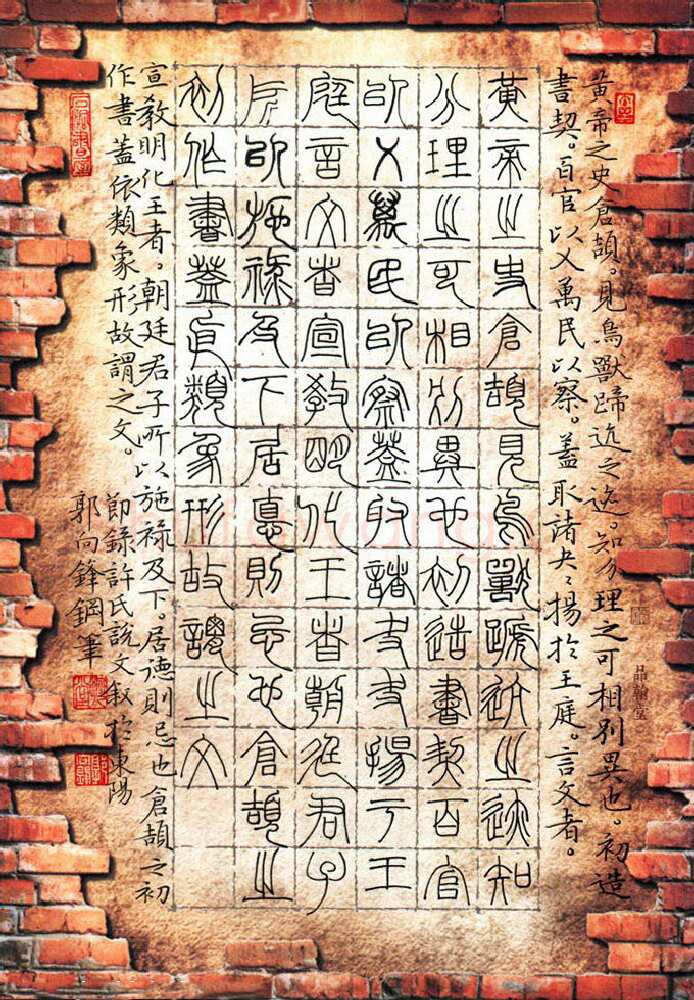 黃帝之史倉頡。見鳥獸蹄迒之迹。知分理之可相別異也。初造
書契。百官以乂萬民以察。蓋取諸夬々揚於王庭。言文者。
黃帝之史倉頡見鳥獸蹏迒之迹知
分理之可相別異也初造書契百官
㠯乂萬民㠯察蓋取諸夬夬揚于王
庭言文者宣教明化王者朝廷君子
所㠯施祿及下居悳則忌也倉頡之
初作書蓋依類象形故謂之文
宣教明化王者。朝廷君子所以施祿及下。居德則忌也倉頡之初
作書蓋依類象形故謂之文。
節錄許氏說文敘於東陽
郭向鋒鋼筆
品翰堂